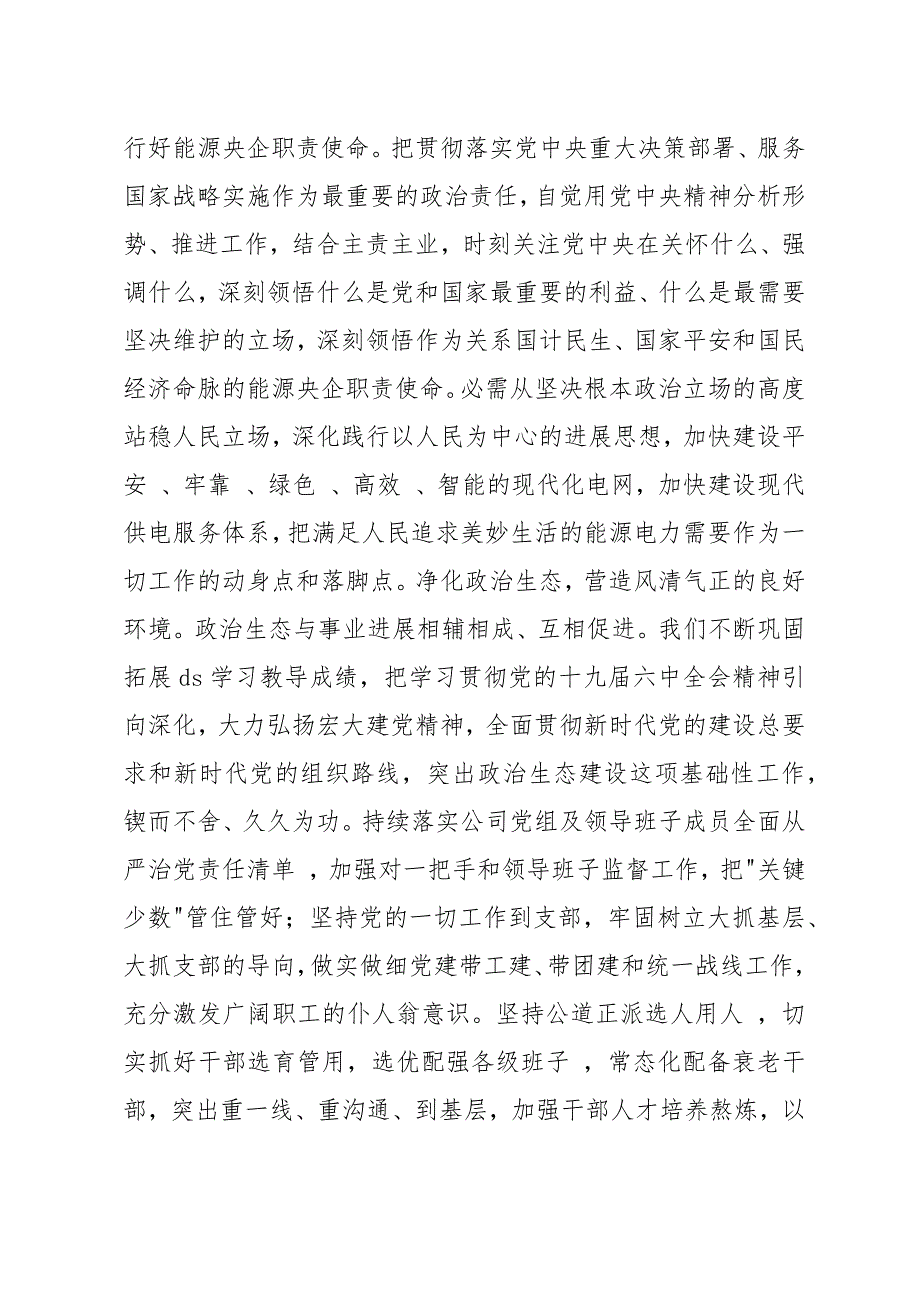 行好能源央企职责使命。把贯彻落实党中央重大决策部署、服务
国家战略实施作为最重要的政治责任，自觉用党中央精神分析形
势、推进工作，结合主责主业，时刻关注党中央在关怀什么、强
调什么，深刻领悟什么是党和国家最重要的利益、什么是最需要
坚决维护的立场，深刻领悟作为关系国计民生、国家平安和国民
经济命脉的能源央企职责使命。必需从坚决根本政治立场的高度
站稳人民立场，深化践行以人民为中心的进展思想，加快建设平
安 、牢靠 、绿色 、高效 、智能的现代化电网，加快建设现代
供电服务体系，把满足人民追求美妙生活的能源电力需要作为一
切工作的动身点和落脚点。净化政治生态，营造风清气正的良好
环境。政治生态与事业进展相辅相成、互相促进。我们不断巩固
拓展 ds 学习教导成绩，把学习贯彻党的十九届六中全会精神引
向深化，大力弘扬宏大建党精神，全面贯彻新时代党的建设总要
求和新时代党的组织路线，突出政治生态建设这项基础性工作，
锲而不舍、久久为功。持续落实公司党组及领导班子成员全面从
严治党责任清单 ，加强对一把手和领导班子监督工作，把"关键
少数"管住管好；坚持党的一切工作到支部，牢固树立大抓基层、
大抓支部的导向，做实做细党建带工建、带团建和统一战线工作，
充分激发广阔职工的仆人翁意识。坚持公道正派选人用人 ，切
实抓好干部选育管用，选优配强各级班子 ，常态化配备衰老干
部，突出重一线、重沟通、到基层，加强干部人才培养熬炼，以